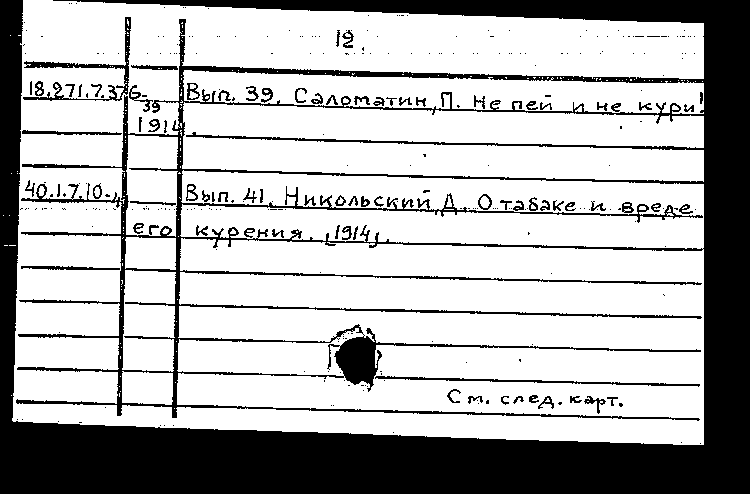 12.
18.271.7.376- Вып. 39. Саломатин, П. Не пей и не кури!
39
1914.
40.1.7.10-4 Вып. 41. Никольский, Д. О табаке и вреде
его курения. [1914].
См. след. карт.